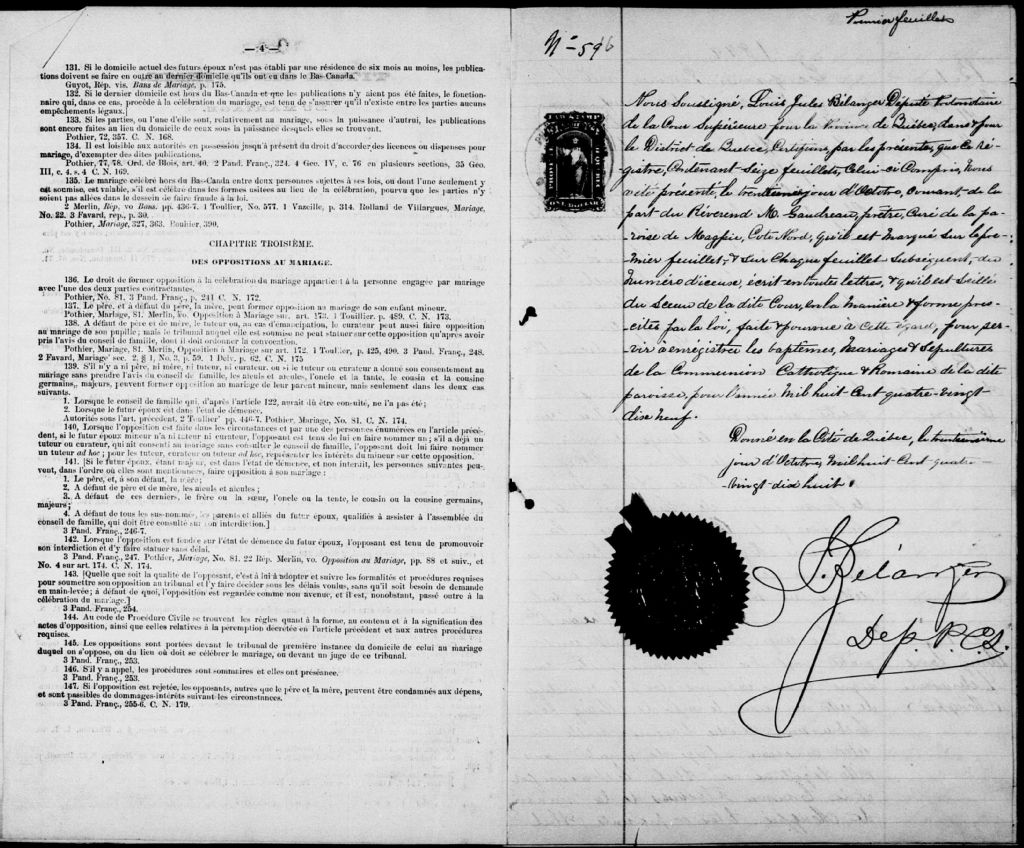 — 4 —
131. Si le domicile actuel des futurs époux n'est pas établi par une résidence de six mois au moins, les publica-
tions doivent se faire en outre au dernier domicile qu'ils ont eu dans le Bas-Canada.
Guyot, Rép. vis. Bans de Mariage, p. 175.
132. Si le dernier domicile est hors du Bas-Canada et que les publications n'y aient pas été faites, le fonction-
naire qui, dans ce cas, procède à la célébration du mariage, est tenu de s'assurer qu'il n'existe entre les parties aucuns
empêchements légaux.]
133. Si les parties, ou l'une d'elles, sont, relativement au mariage, sous la puissance d'autrui, les publications
sont encore faites au lieu du domicile de ceux sous la puissance desquels elles se trouvent.
Pothier, 72, 357. C. N. 168.
134. Il est loisible aux autorités en possession jusqu'à présent du droit d'accorder les licences ou dispenses pour
mariage, d'exempter des dites publications.
Pothier, 77, 78. Ord. de Blois, art. 40. 2 Pand. Franç., 324. 4 Geo. IV, c. 76 en plusieurs sections, 35 Geo.
III, c. 4. s. 4 C. N. 169.
135. Le mariage célébré hors du Bas-Canada entre deux personnes sujettes à ses lois, ou dont l'une seulement y
est soumise, est valable, s'il est célébré dans les formes usitées au lieu de la célébration, pourvu que les parties n'y
soient pas allées dans le dessein de faire fraude à la loi.
2 Merlin, Rep. vo Bans. pp. 436-7. 1 Toullier, No. 577. 1 Vazeille, p. 314. Rolland de Villargues, Mariage,
No. 22. 3 Favard, rép., p. 30.
Pothier, Mariage, 327, 363. Bouhier, 390.
CHAPITRE TROISIÈME.
DES OPPOSITIONS AU MARIAGE.
136. Le droit de former opposition à la célébration du mariage appartient à la personne engagée par mariage
avec l'une des deux parties contractantes.
Pothier, No. 81. 3 Pand. Franç., p. 241 C. N. 172.
137. Le père, et à défaut du père, la mère, peut former opposition au mariage de son enfant mineur.
Pothier, Mariage, 81. Merlin, vo. Opposition à Mariage sur. art. 173. 1 Toullier, p. 489. C. N. 173.
138. A défaut de père et de mère, le tuteur ou, au cas d'émancipation, le curateur peut aussi faire opposition
au mariage de son pupille; mais le tribunal auquel elle est soumise ne peut statuer sur cette opposition qu'après avoir
pris l'avis du conseil de famille, dont il doit ordonner la convocation.
Pothier, Mariage, 81. Merlin, Opposition à Mariage sur art. 172. 1 Toullier, p. 425, 490. 3 Pand. Franç., 248.
2 Favard, Mariage' sec. 2, § 1, No. 3, p. 59. 1 Delv. p. 62. C. N. 175
139. S'il n'y a ni père, ni mère, ni tuteur, ni curateur, ou si le tuteur ou curateur a donné son consentement au
mariage sans prendre l'avis du conseil de famille, les aïeuls et aïeules, l'oncle et la tante, le cousin et la cousine
germains, majeurs, peuvent former opposition au mariage de leur parent mineur, mais seulement dans les deux cas
suivants.
1. Lorsque le conseil de famille qui, d'après l'article 122, aurait dû être consulté, ne l'a pas été;
2. Lorsque le futur époux est dans l'état de démence.
Autorités sous l'art. précédent. 2 Toullier pp. 446-7. Pothier, Mariage, No. 81. C. N. 174.
140. Lorsque l'opposition est faite dans les circonstances et par une des personnes énumérées en l'article précé-
dent, si le futur époux mineur n'a ni tuteur ni curateur, l'opposant est tenu de lui en faire nommer un; s'il a déjà un
tuteur ou curateur, qui ait consenti au mariage sans consulter le conseil de famille, l'opposant doit lui faire nommer
un tuteur ad hoc; pour les tuteur, curateur ou tuteur ad hoc, représenter les intérêts du mineur sur cette opposition.
141. [Si le futur époux, étant majeur, est dans l'état de démence, et non interdit, les personnes suivantes peu-
vent, dans l'ordre où elles sont mentionnées, faire opposition à son mariage:
1. Le père, et, à son défaut, la mère;
2. A défaut de père et de mère, les aïeuls et aïeules;
3. A défaut de ces derniers, le frère ou la sœur, l'oncle ou la tante, le cousin ou la cousine germains,
majeurs;
4. A défaut de tous les sus-nommés, les parents et alliés du futur époux, qualifiés à assister à l'assemblée du
conseil de famille, qui doit être consulté sur son interdiction.]
3 Pand. Franç., 246-7.
142. Lorsque l'opposition est fondée sur l'état de démence du futur époux, l'opposant est tenu de promouvoir
son interdiction et d'y faire statuer sans délai.
3 Pand. Franç., 247. Pothier, Mariage, No. 81. 22 Rép. Merlin, vo. Opposition au Mariage, pp. 88 et suiv., et
No. 4 sur art. 174. C. N. 174.
143. [Quelque que soit la qualité de l'opposant, c'est à lui à adopter et suivre les formalités et procédures requises
pour soumettre son opposition au tribunal et l'y faire décider sous les délais voulus, sans qu'il soit besoin de demande
en main-levée; à défaut de quoi, l'opposition est regardée comme non avenue, et il est, nonobstant, passé outre à la
célébration du mariage.]
3 Pand. Franç., 254.
144. Au code de Procédure Civile se trouvent les règles quant à la forme, au contenu et à la signification des
actes d'opposition, ainsi que celles relatives à la péremption décretée en l'article précédent et aux autres procédures
requises.
145. Les oppositions sont portées devant le tribunal de première instance du domicile de celui au mariage
duquel on s'oppose, ou du lieu où doit se célébrer le mariage, ou devant un juge de ce tribunal.
3 Pand. Franç., 253.
146. S'il y a appel, les procédures sont sommaires et elles ont préséance.
3 Pand. Franç., 253.
147. Si l'opposition est rejetée, les opposants, autres que le père et la mère, peuvent être condamnés aux dépens,
et sont passibles de dommages-intérêts suivant les circonstances.
3 Pand. Franç., 255-6. C. N. 179.
Premier feuillet
No 596
LAW STAMP
ONE DOLLAR
Nous Soussigné, Louis Jules Bélanger Député Protonotaire
de la Cour Supérieure pour la Province de Québec, dans & pour
le District de Québec, Certifions par les présentes, que ce Ré-
gistre, Contenant Seize feuillets, Celui-ci Compris, Nous
a été présenté le trentième jour d'Octobre, courant de la
part du Révérend M. Gaudreau, prêtre, Curé de la pa-
-roisse de Magpie, Côte Nord, qu'il est marqué sur le pre-
-mier feuillet, & sur chaque feuillet subséquent, du
Numéro d'iceux, écrit en toutes lettres, & qu'il est Scellé
du Sceau de la dite Cour, en la Manière & forme pres-
crites par la loi, faite & pourvue à Cette égard, pour ser-
-vir à enrégistrer les baptêmes, Mariages & Sépultures
de la Communion Catholique & Romaine de la dite
paroisse, pour l'année Mil huit Cent quatre-vingt
dix Neuf.
Donné en la Cité de Québec, le trente unième
jour d'Octobre, Mil huit Cent quatre-
-vingt dix huit.
J. Bélanger
Dep. P. C. S.